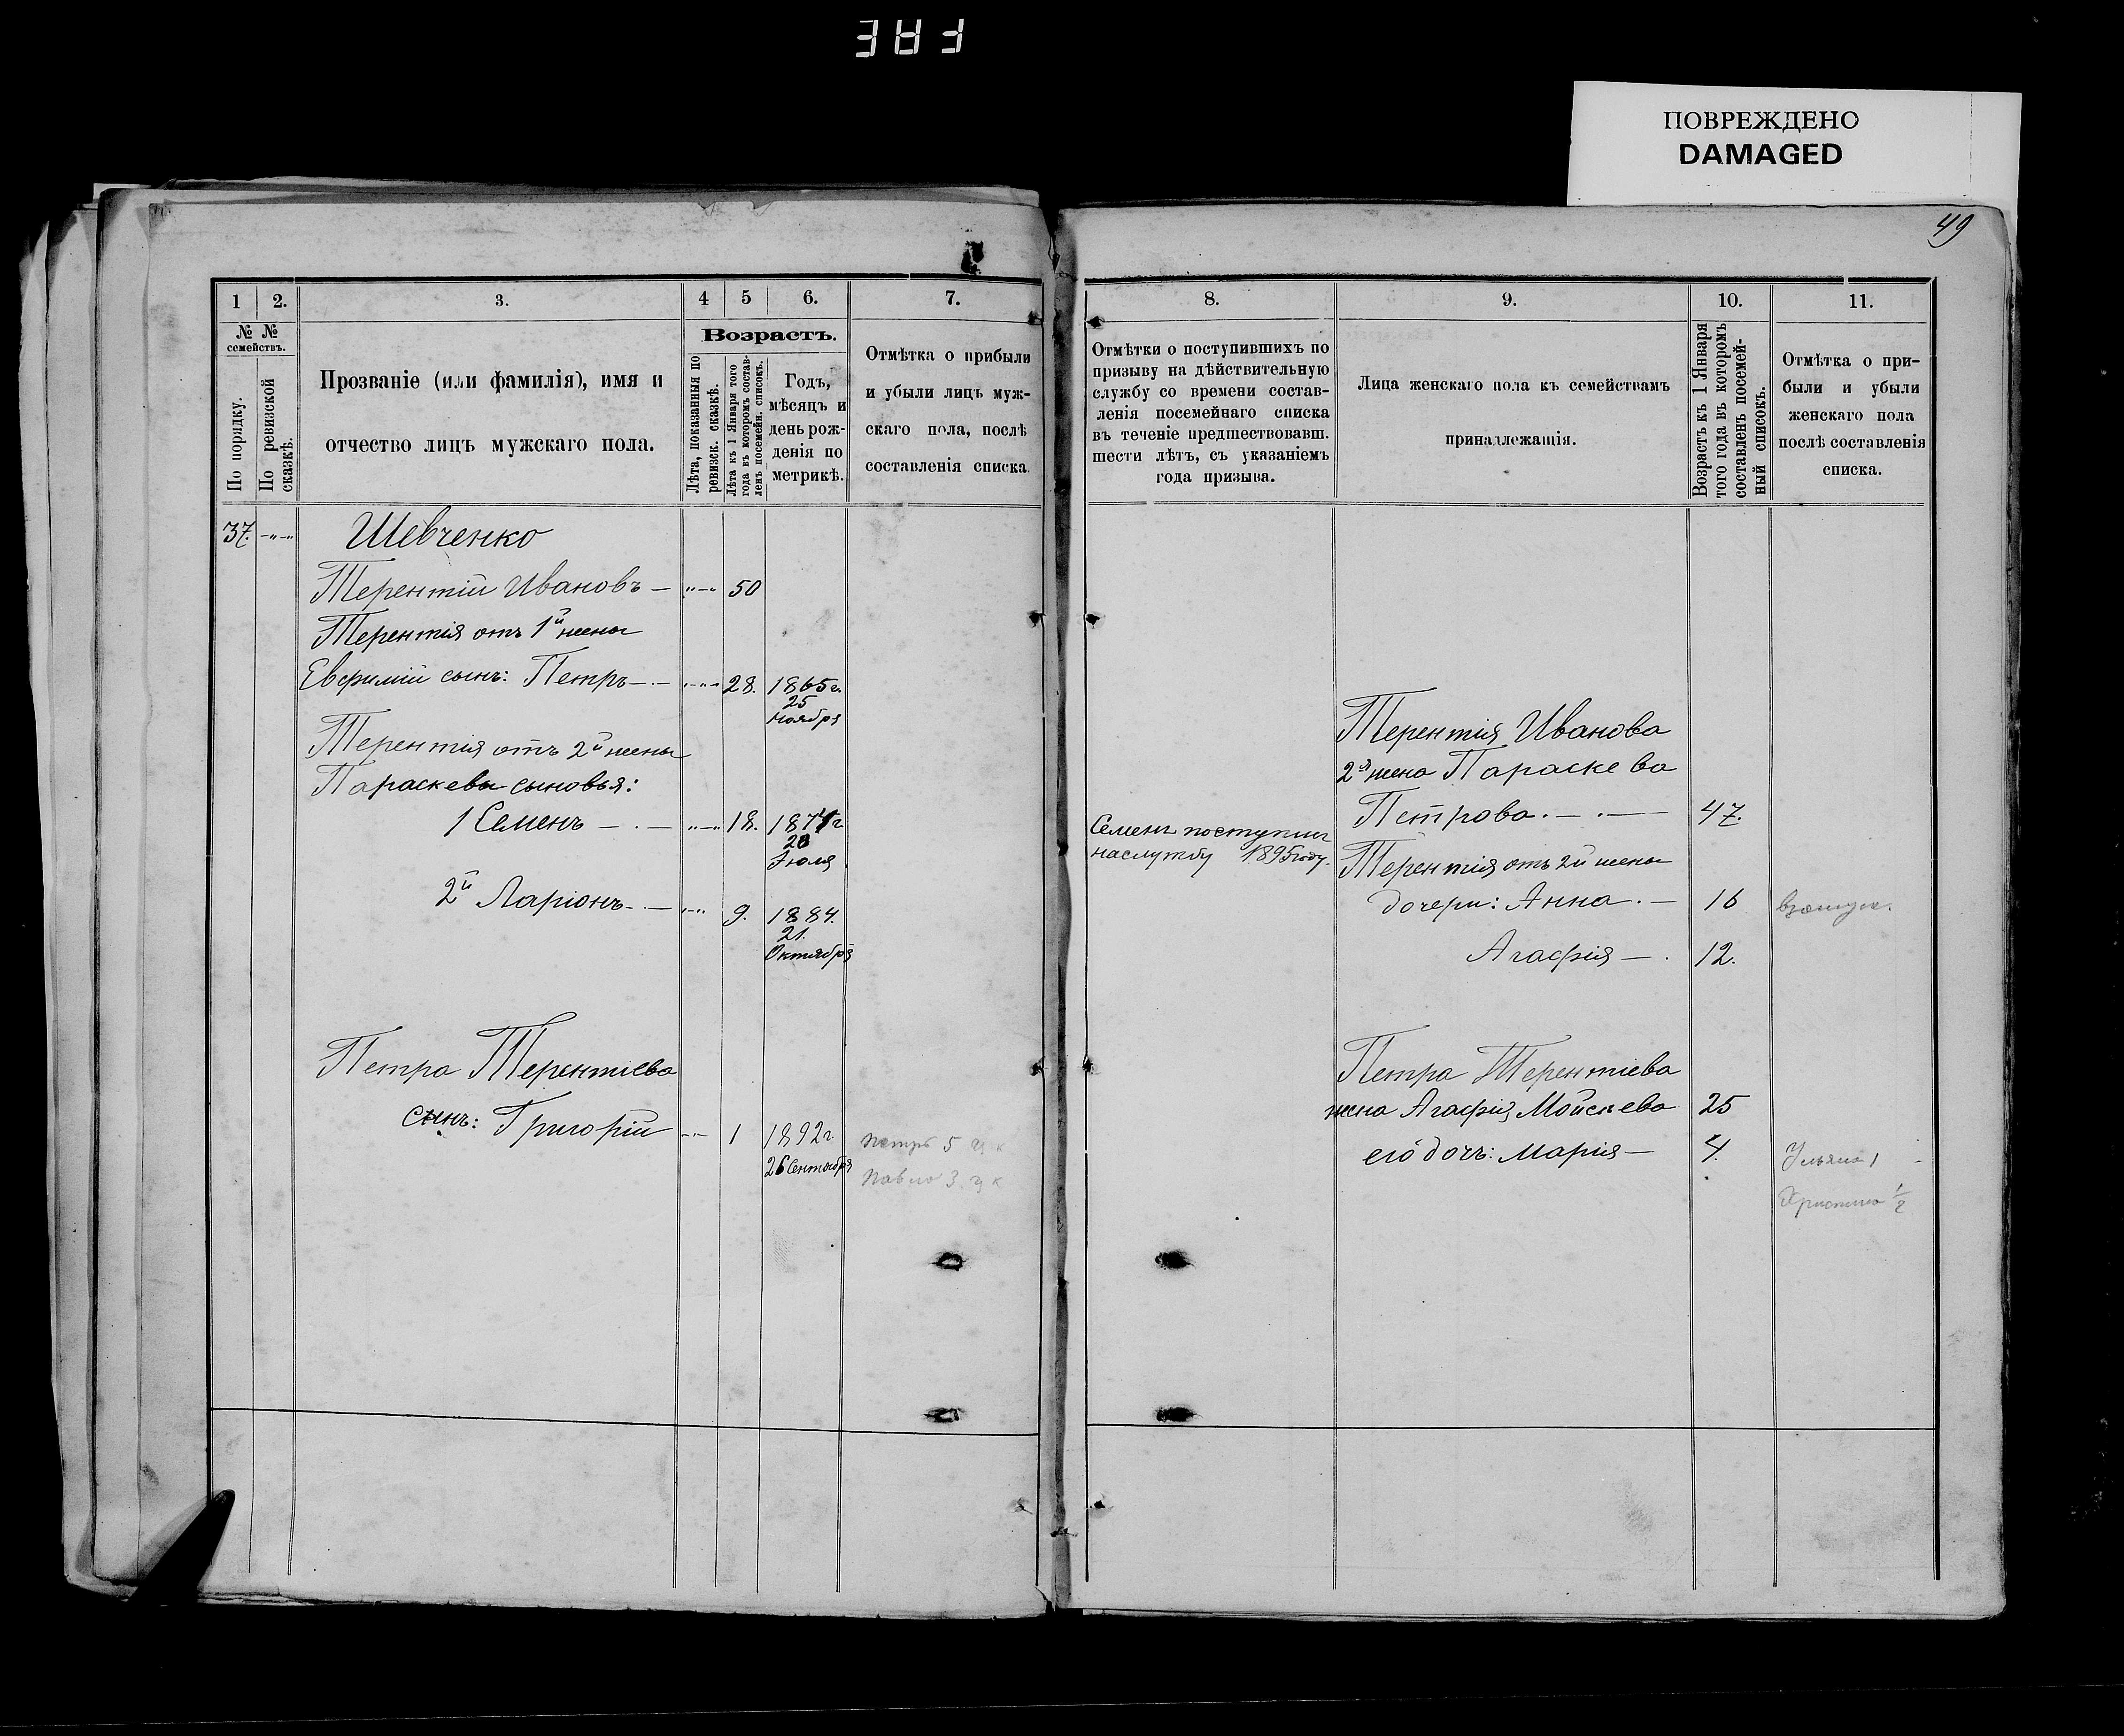 ПОВРЕЖДЕНО
DAMAGED
49
1
2.
3.
4
5
6.
7.
№ №
семействъ.
По порядку.
По ревизской
сказкѣ.
Прозваніе (или фамилія), имя и
отчество лицъ мужскаго пола.
Возрастъ.
Лѣта, показанныя по
ревизск. сказкѣ.
Лѣта къ 1 Января того
года въ которомъ состав-
ленъ посемейн. списокъ.
Годъ,
мѣсяцъ и
день рож-
денія по
метрикѣ.
Отмѣтка о прибыли
и убыли лицъ муж-
скаго пола, послѣ
составленія списка.
37.
Шевченко
Терентій Ивановъ — 50
Терентія отъ 1й жены
Евфимій сынъ: Петръ — 28. 1865 г.
25
Ноября
Терентія отъ 2й жены
Параскевы сыновья:
1 Семенъ — 18. 1874 г
20
Іюля
2й Ларіонъ — 9. 1884.
21.
Октября
Петра Терентіева
сынъ: Григорій 1 1892 г
26 Сентября
Петръ 5
Павло 3
8.
9.
10.
11.
Отмѣтки о поступившихъ по
призыву на дѣйствительную
службу со времени состав-
ленія посемейнаго списка
въ теченіе предшествовавш.
шести лѣтъ, съ указаніемъ
года призыва.
Лица женскаго пола къ семействамъ
принадлежащія.
Возрастъ къ 1 Января
того года въ которомъ
составленъ посемей-
ный списокъ.
Отмѣтка о при-
были и убыли
женскаго пола
послѣ составленія
списка.
Терентія Иванова
2я жена Параскева
Петрова. — 47.
Семенъ поступилъ
на службу 1895 году.
Терентія отъ 2й жены
дочери: Анна. — 16
Агафія — 12.
Петра Терентіева
жена Агафія Мойсеева 25
его дочь: Марія — 4.
Ульяна 1
Христина 1/2